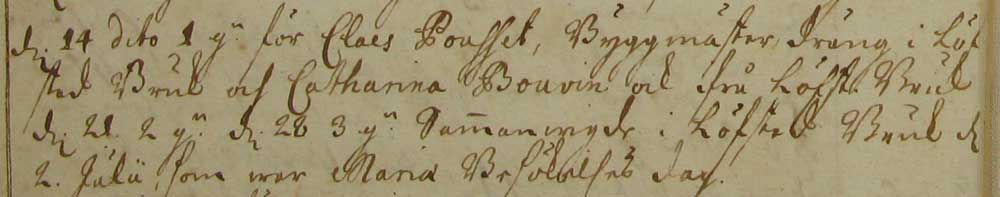 d. 14 dito 1 g. för Claes Pousset, Byggmästar dräng i Löf
sted Bruk och Catharina Bouvin ok frå Löfst. Bruk
d. 21. 2 g. d. 28 3 g. Sammanvigde i Löfsted Bruk d.
2. Julii, som war Mariæ Besökelses dag.